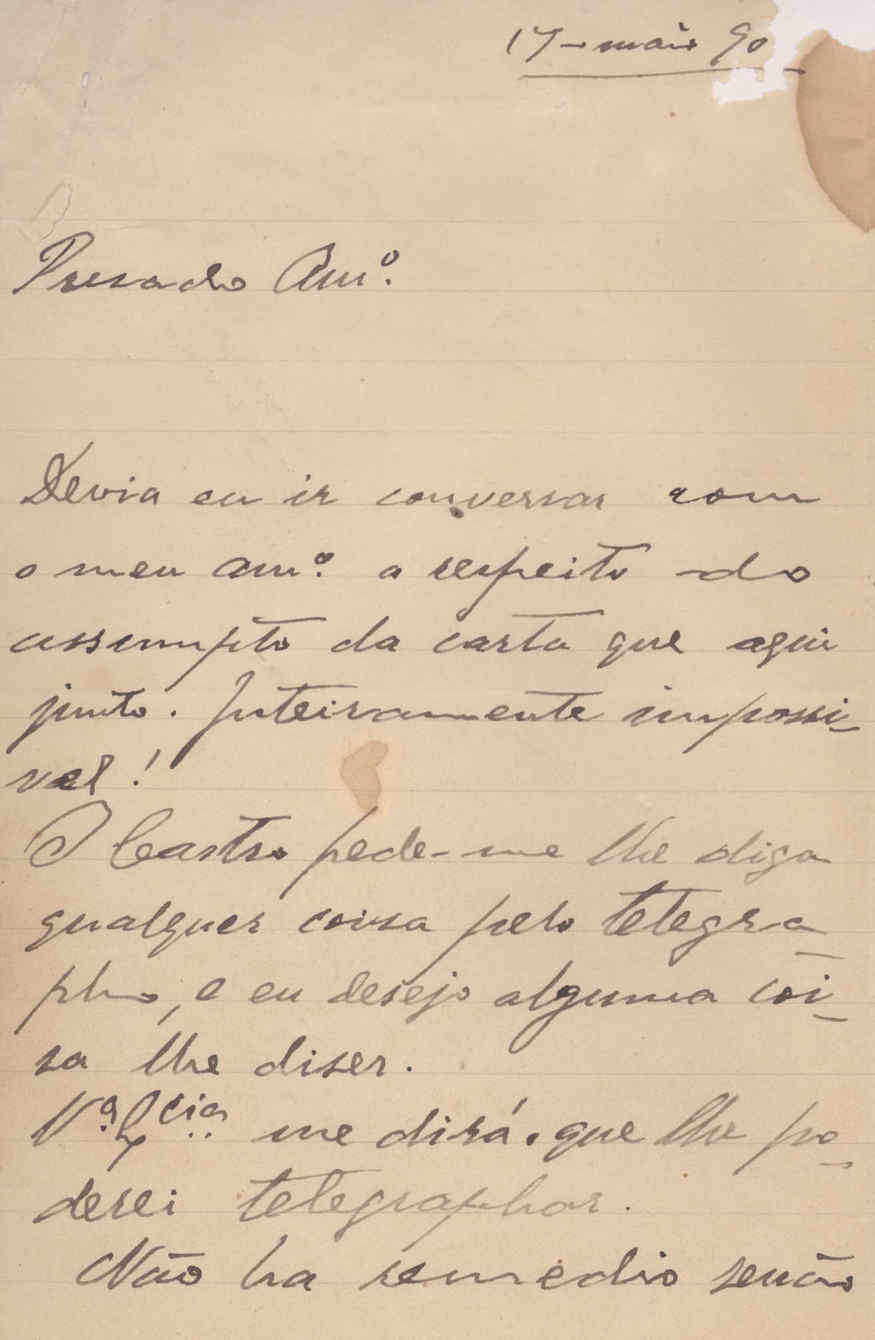 17 - maio 90
Presado Amº.
Devia eu ir conversar com
o meu amº. a respeito do
assumpto da carta que aqui
junto. Inteiramente impossi-
vel!
O Castro pede-me lhe diga
qualquer coisa pelo telegra-
pho, e eu desejo alguma coi-
sa lhe diser.
Vª. Excia. me dirá o que lhe po-
derei telegraphar.
Não ha remedio senão